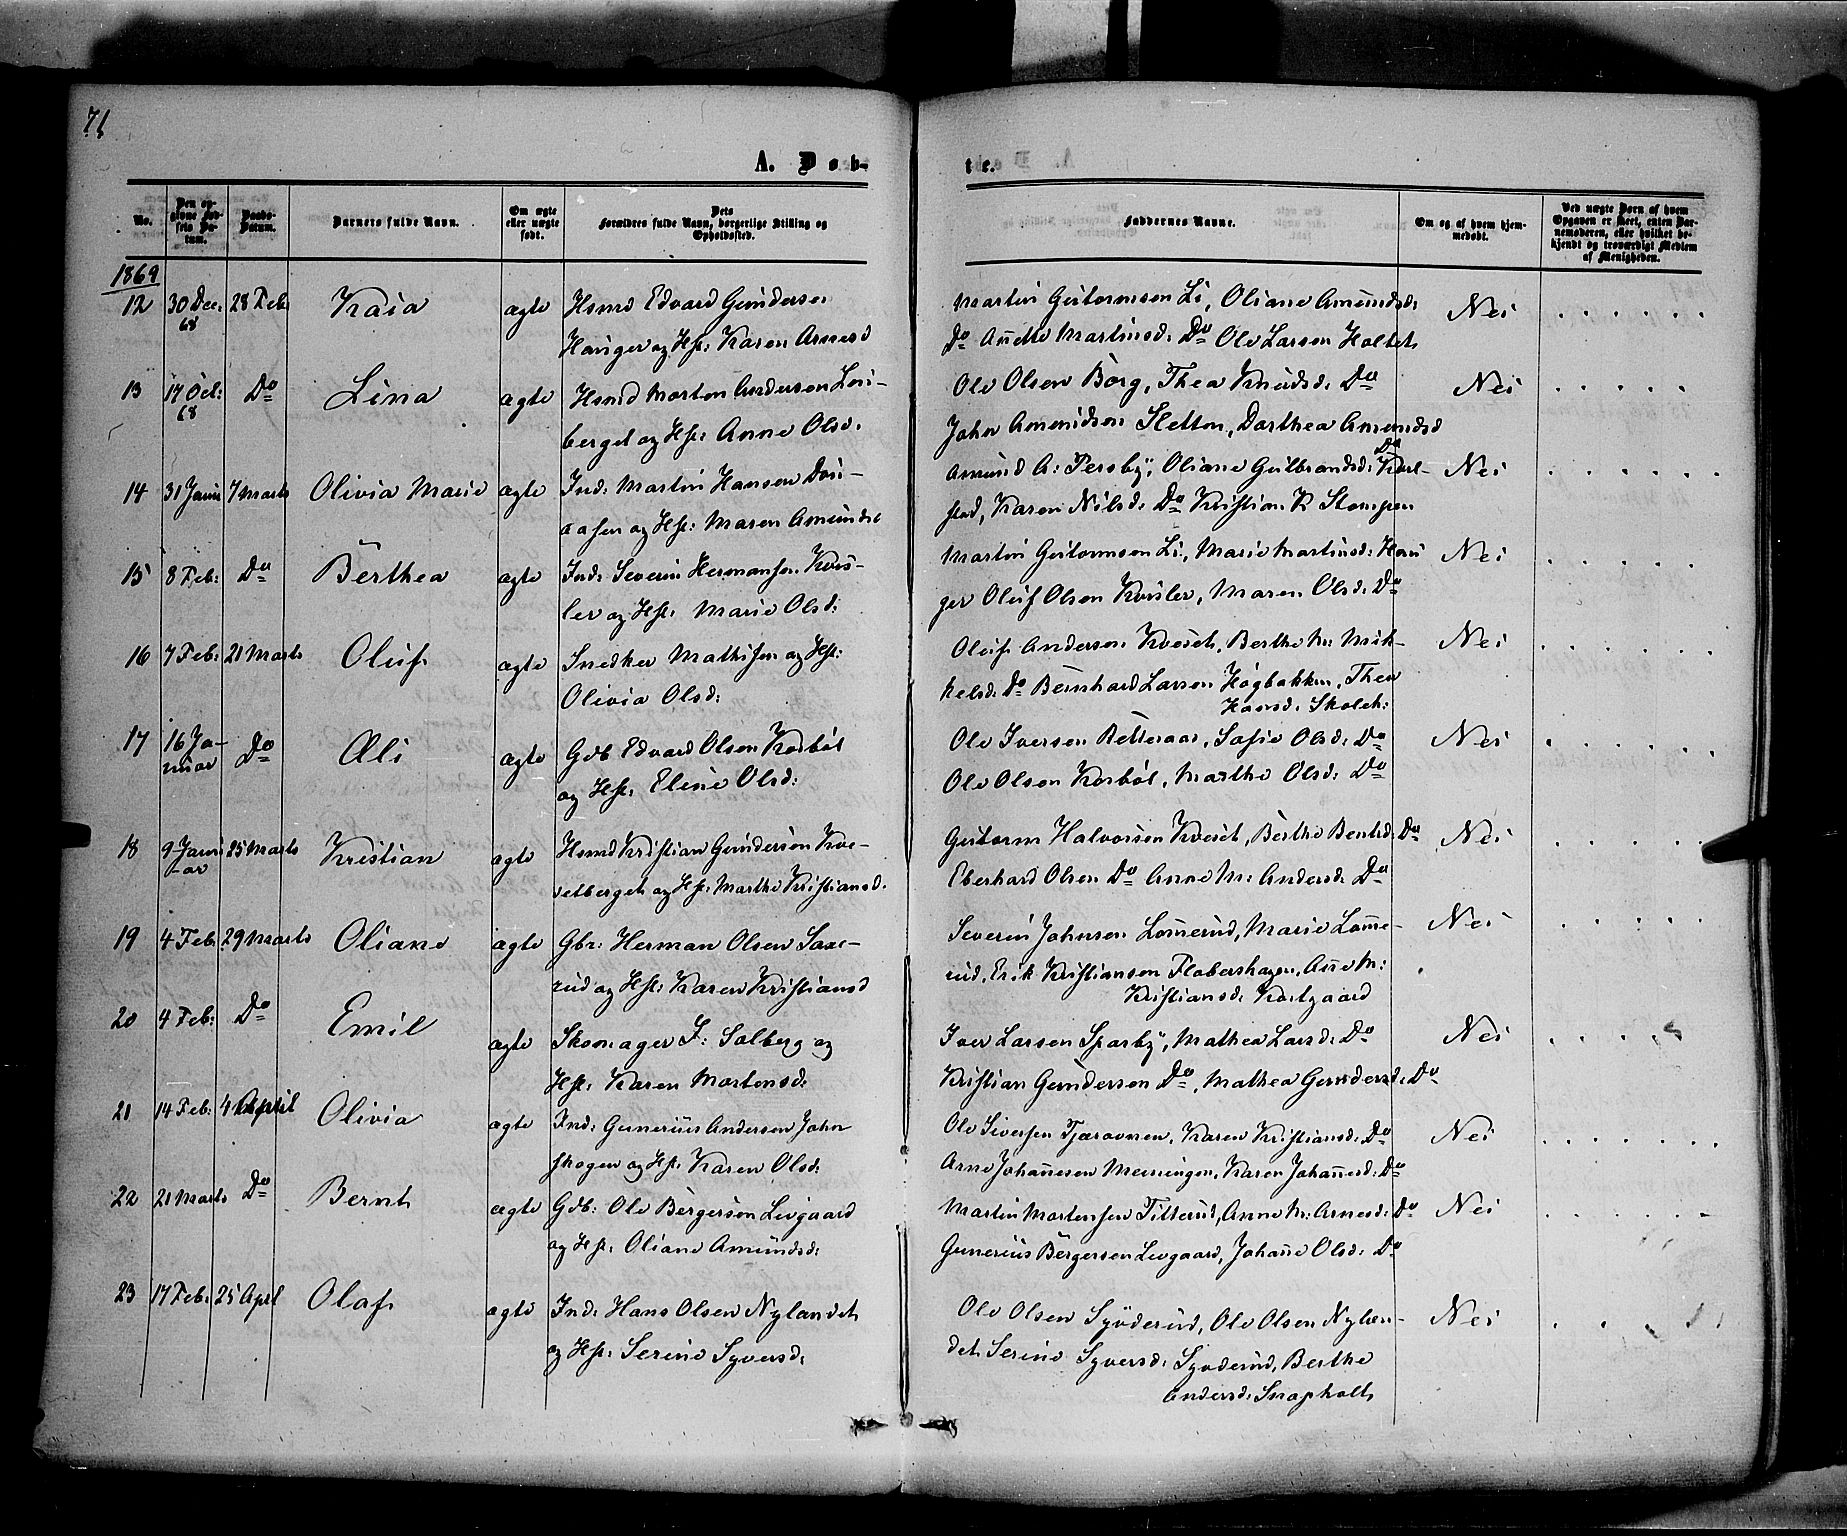 71
A. Døb-
te.
No.
Den opgivne Fødsels Datum.
Daabs-Datum.
Barnets fulde Navn.
Om ægte eller uægte født.
Dets Forældres fulde Navn, borgerlige Stilling og Opholdssted.
Faddernes Navne.
Om og af hvem hjemmedøbt.
Ved uægte Børn af hvem Opgaven er skeet, enten Barnemoderen, eller hvilket bekjendt og troværdigt Medlem af Menigheden.
1869
12 30 Dec: 68 28 Feb Kaia ægte Hsmd Edvard Gundersen
Hauger og Hst: Karen Arnesd
Martin Guttormsen Li, Oliane Amundsd: Nei
Do Anette Martinsd: Do Ole Larsen Holtet
13 17 Oct: 68 Do Lina ægte Hsmd Morten Andersen
berget og Hst: Anne Olsd.
Ole Olsen Borg, Thea Knudsd: Do Nei
John Amundsen Sletten, Dorthea Amundsd
14 31 Janu 7 Marts Olivia Marie ægte Ind: Martin Hansen
aasen og Hst: Maren Amundsd
Amund A: Persby, Oliane Gulbrandsd: Do Karl- Nei
stad, Karen Nilsd: Do Kristian K Stompen
15 8 Feb: Do Berthea ægte Ind: Severin Hermansen Kvis-
ler og Hst: Marie Olsd:
Martin Guttormsen Li, Marie Martinsd: Hau Nei
ger Oluf Olsen Kvisler, Maren Olsd: Do
16 7 Feb: 21 Marts Oluf ægte Snedker Mathisen og Hst:
Olivia Olsd:
Oluf Andersen Kveset, Berthe M: Mik- Nei
kelsd: Do Bernhard Larsen Høgbakken, Thea
Hansd: Skoleh:
17 16 Ja-
nuar Do Æli ægte Gdb Edvard Olsen Korbøl
og Hst: Eline Olsd:
Ole Iversen Betteraas, Sofie Olsd: Do Nei
Ole Olsen Korbøl, Marthe Olsd: Do
18 9 Janu
-ar 25 Marts Kristian ægte Hsmd Kristian Gundersen Kve-
setberget og Hst: Marthe Kristiansd.
Guttorm Halvorsen Kveset, Berthe Berntsd: Do Nei
Eberhard Olsen Do Anne M: Andersd: Do
19 4 Feb. 29 Marts Oliane ægte Gbr: Herman Olsen Saxe-
rud og Hst: Karen Kristiansd
Severin Johnsen Lømerud, Marie Løme- Nei
rud, Erik Kristiansen Flabershagen, Anne M:
Kristiansd: Kortgaard
20 4 Feb: Do Emil ægte Skomager F: Solberg og
Hst: Karen Mortensd:
Iver Larsen Sparby, Mathea Larsd: Do Nei
Kristian Gundersen Do, Mathea Gundersd: Do
21 14 Feb: 4 April Olivia ægte Ind: Gunerius Andersen John
skogen og Hst: Karen Olsd:
Ole Siversen Tjæraovnen, Karen Kristiansd: Do Nei
Arne Johannesen Menningen, Karen Johannesd: Do
22 21 Marts Do Bernt ægte Gdb: Ole Børgersen Livgaard
og Hst: Oliane Amundsd:
Martin Mortensen Titterud, Anne M: Arnesd: Do Nei
Gunerius Børgersen Livgaard, Johanne Olsd: Do
23 17 Feb: 25 Aprl Olaf ægte Ind: Hans Olsen Nylandet
og Hst: Serine Syversd:
Ole Olsen Syøderud, Ole Olsen Nylæn- Nei
det Serine Syversd: Syøderud, Berthe
Andersd: Snapholt